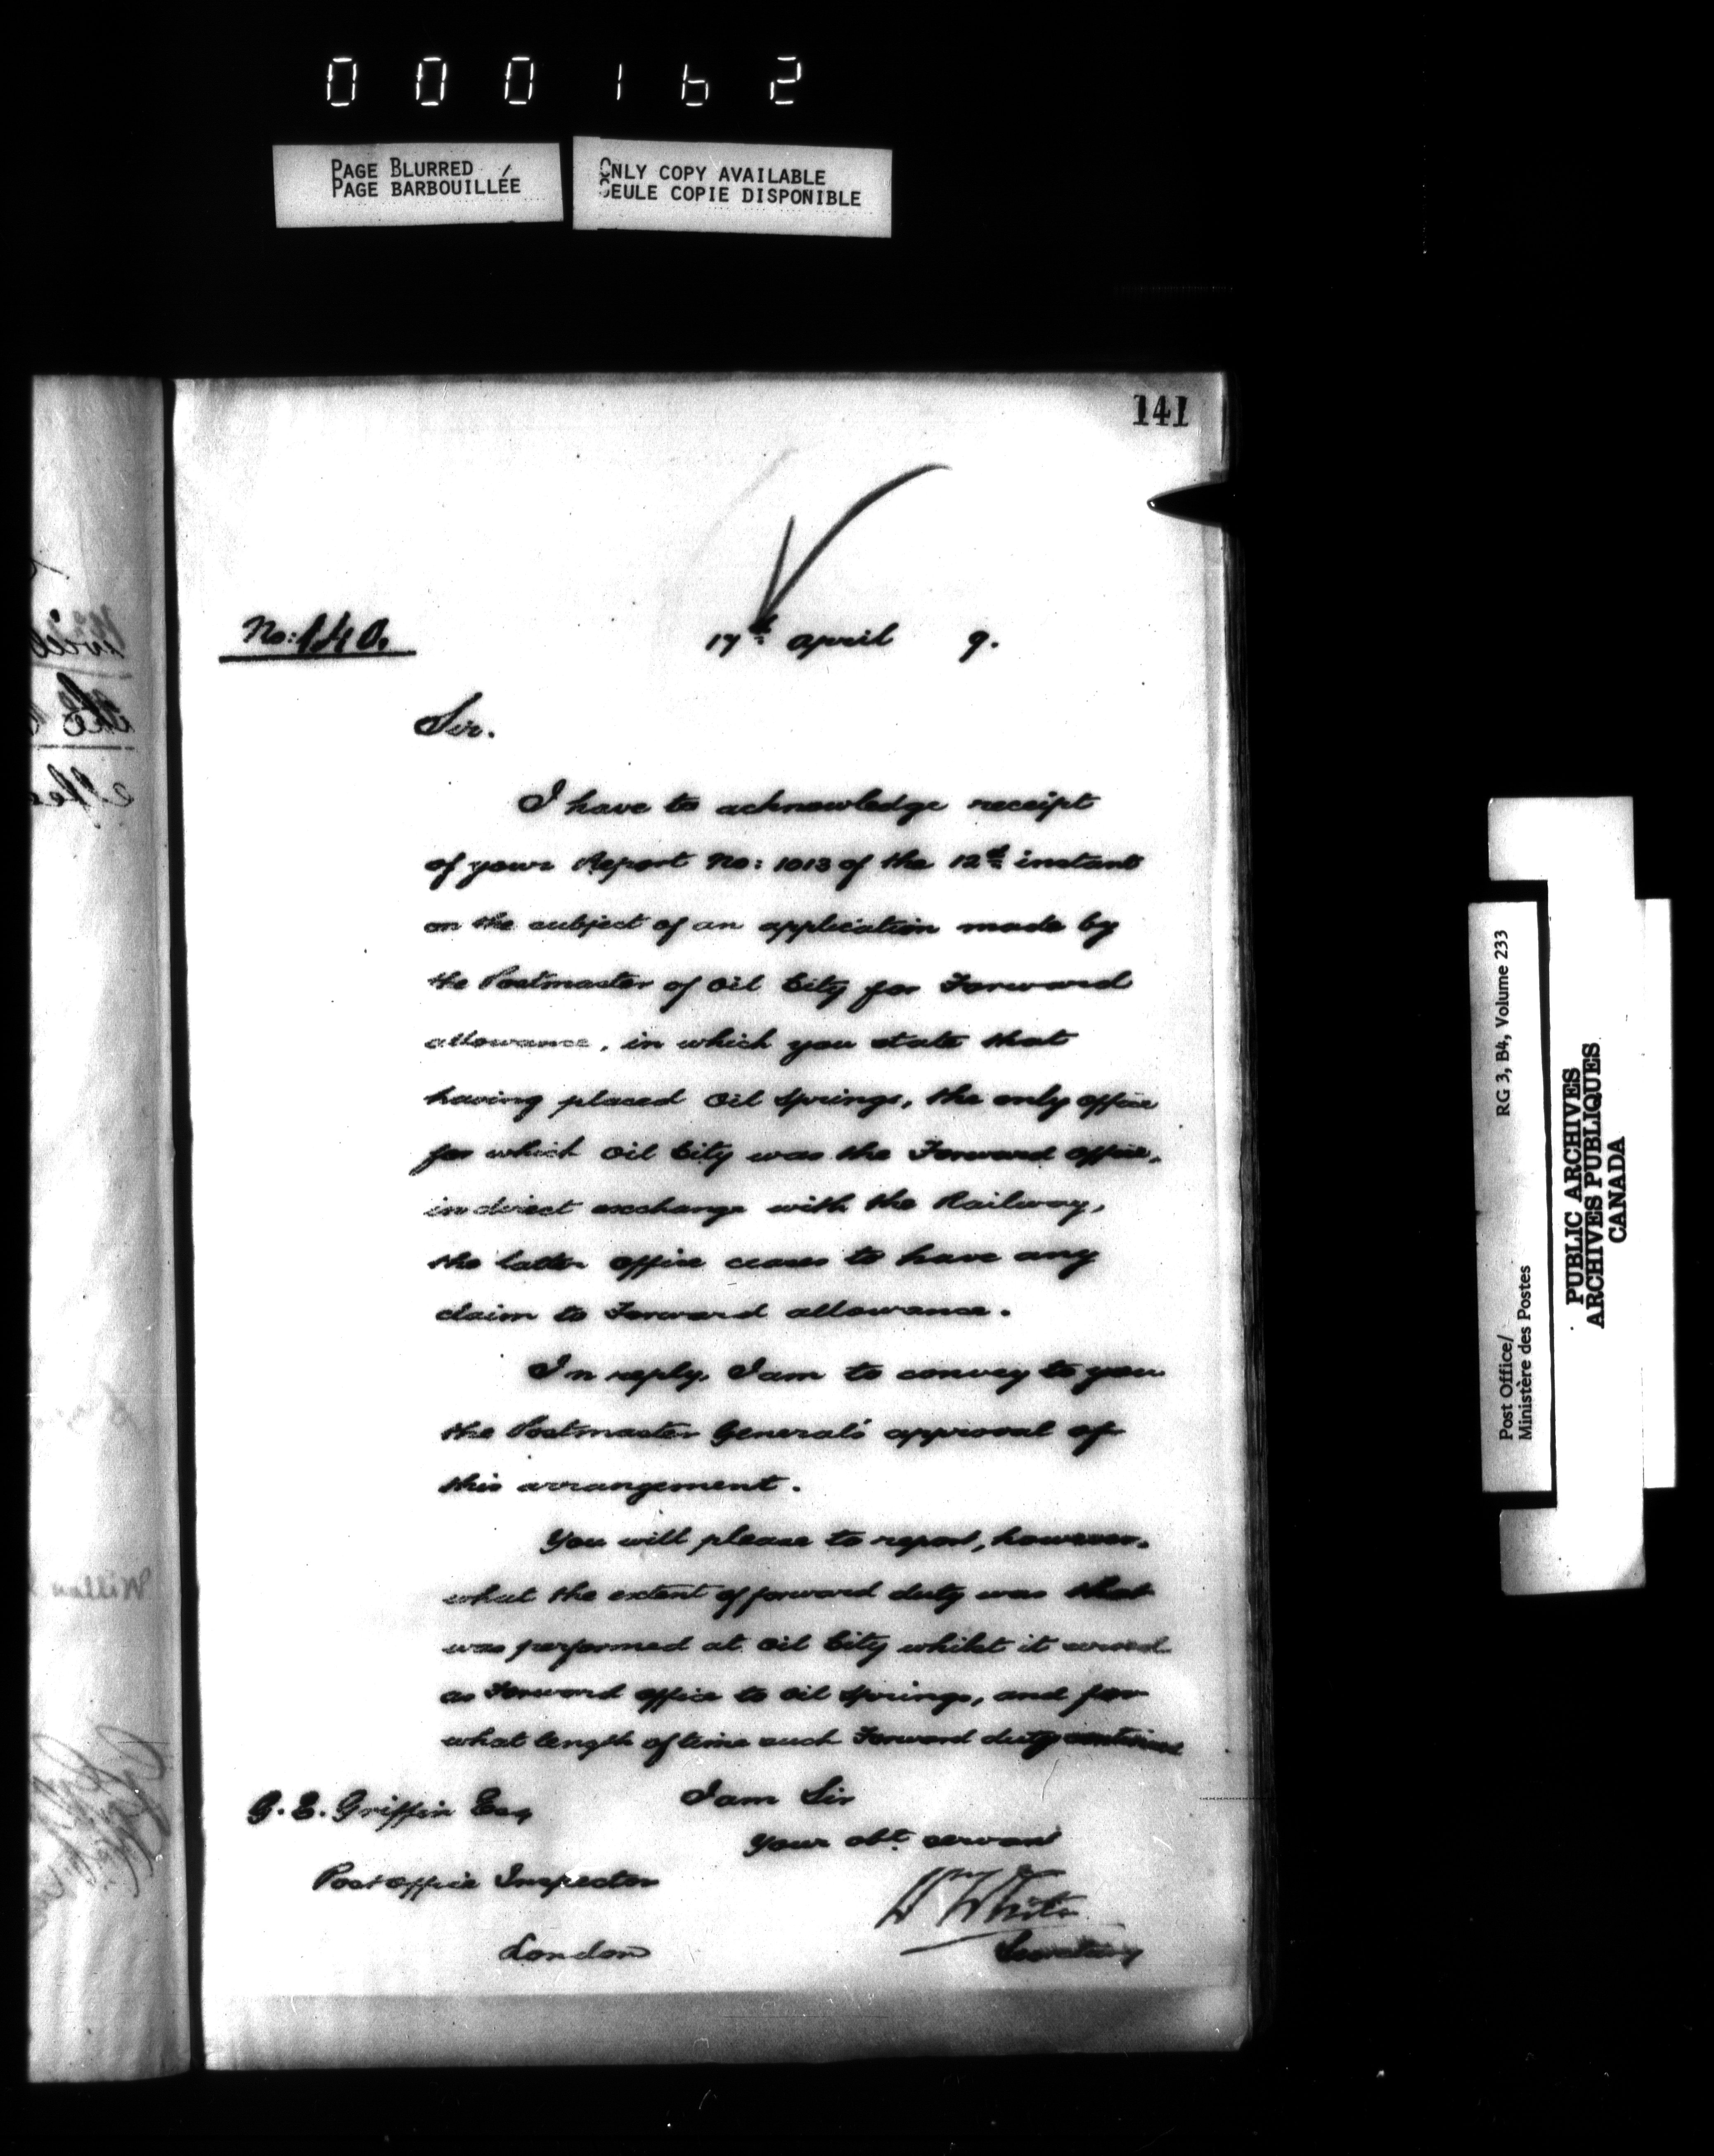 000162
PAGE BLURRED
PAGE BARBOUILLÉE
ONLY COPY AVAILABLE
SEULE COPIE DISPONIBLE
141
No: 140.
17th April 9.
Sir.
I have to acknowledge receipt
of your Report No: 1013 of the 12th instant
on the subject of an application made by
the Postmaster of Oil City for Forward
allowance, in which you state that
having placed Oil Springs, the only office
for which Oil City was the Forward Office,
in direct exchange with the Railway,
the latter office ceases to have any
claim to Forward allowance.
In reply, I am to convey to you
the Postmaster General's approval of
this arrangement.
You will please to report, however,
what the extent of forward duty was that
was performed at Oil City whilst it served
as Forward Office to Oil Springs, and for
what length of time such Forward duty continued
I am Sir
Your obt. servant
G. E. Griffin Esq
Post Office Inspector
London
Wm White
Secretary
Post Office/
Ministère des Postes
RG 3, B4, Volume 233
PUBLIC ARCHIVES
ARCHIVES PUBLIQUES
CANADA